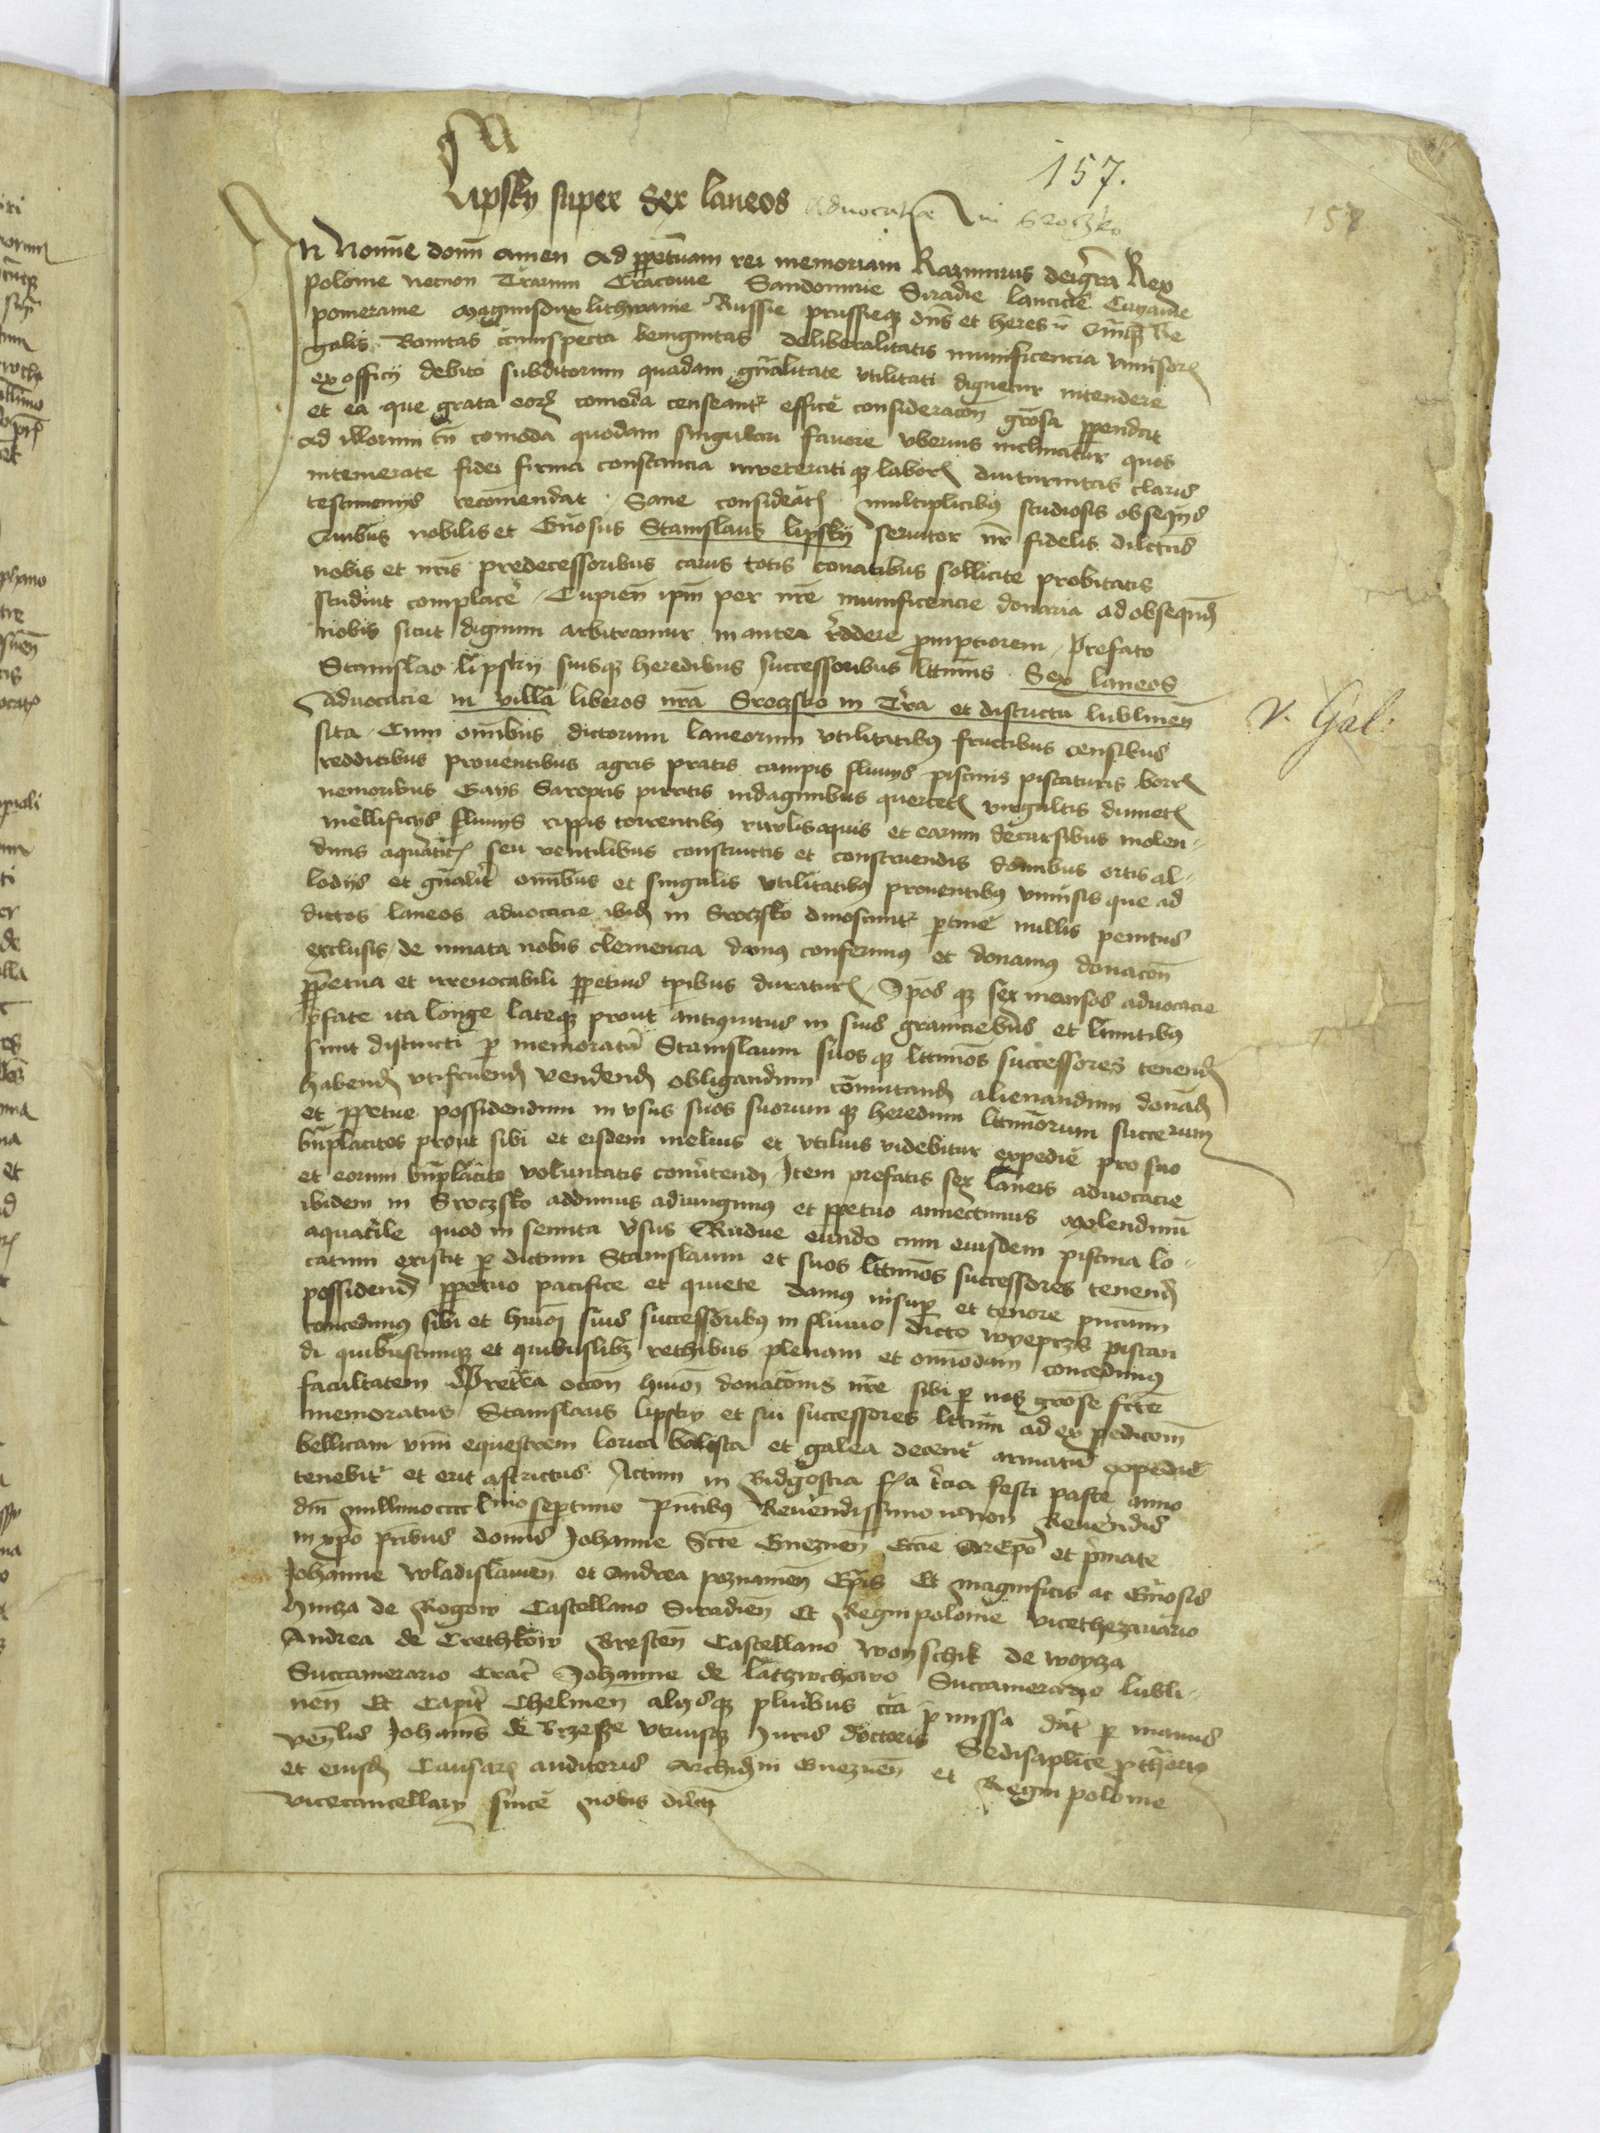 157.
157
Lipsky super Sex laneos Advocatiae in Sroczko
In Nomine domini Amen Ad perpetuam rei memoriam Kazimirus dei gra Rex
polonie necnon Terrarum Cracovie Sandomirie Siradie lancicie Cuyavie
pomeranie Magnusdux lithwanie Russie prussieque dns et heres Re
galis Bonitas circumspecta benignitas deliberalitatis munificencia
ex officij debito subditorum quadam gnalitate utilitati dignetur intendere
et ea que grata eorum comoda censeantur consideracon grosa ppendat
Ad illorum tn comoda quodam singulari favore uberius inclinatur quos
intemerate fidei firma constancia inveteratique labor diuturnitas claris
testimonijs recomendat Sane considerat multiplicibus studiosis obsequijs
Quibus nobilis et Gnosus Stanislaus lipsky servitor nr fidelis dilectus
nobis et nris predecessoribus carus totis conatibus sollicite probitatis
studuit complacere Cupien ipm per nre munificencie donaria ad obsequia
nobis sicut dignum arbitramur inantea reddere promptiorem Prefato
Stanislao lipsky suisque heredibus successoribus lttimis Sex laneos
advocacie in villa liberos nra Sroczko in Tra et districtu lublinen
v. Gal:
sita Cum omnibus dictorum laneorum utilitatibus fructibus censibus
redditibus proventibus agris pratis campis fluvijs piscinis piscaturis borris
nemoribus Gays Sareptis piratis indaginibus quercetis virgultis dumetis
mellificijs fluvijs rippis torrentibus rivulis aquis et earum decursibus molen-
dinis aquaticis seu ventilibus constructis et construendis domibus ortis al-
lodijs et gnaliter omnibus et singulis utilitatibus proventibus universis que ad
dictos laneos advocacie ibidem in Sroczko dinoscuntur ptinere nullis penitus
exclusis de innata nobis clemencia damus conferimus et donamus donacon
ppetua et irrevocabili ppetuis tpibus duratur Ipos que sex mansos advocacie
pfate ita longe lateque prout antiquitus in suis graniciebus et limitibus
sunt distincti p memoratum Stanislaum suos que lttimos successores tenend
habend utifruend vendend obligandum comutand alienandum donand
et ppetue possidendum in usus suos suorum que heredum lttimorum succerum
bnplacitos prout sibi et eisdem melius et utilius videbitur expedire pro suo
et eorum bnplacito voluntatis convertend Item prefatis sex laneis advocacie
ibidem in Sroczko addimus adiungimus et ppetuo annectimus Molendinum
aquatile quod in semita versus Rudne eundo cum eiusdem piscina lo-
catum existit p dictum Stanislaum et suos lttimos successores tenend
possidend ppetuo pacifice et quiete damus insup et tenore pncium
concedimus sibi et suis successoribus in fluvio dicto wyeprzs piscan
di quibuscunque et quibuslibet rethibus plenam et omnodam concedimus
facultatem Pretera donacionis nre sibi p nos grose fcte
memoratus Stanislaus lipsky et sui successores lttimi ad expedicom
bellicam unum equestrem lorica balista et galea decenter armatum expedire
tenebitur et erit astrictus Actum in Bidgostia fia tercia festi pasce anno
dni millimo cccc lmo septimo Pntibus Reverendissimo necnon Reverendis
in xpo pribus domis Johanne Scte Gneznen Eccie Arepo et pmate
Johanne wladislavien et Andrea poznanien Epis Et magnificis ac Gnosis
hincza de Rogow Castellano Siradien Et Regni polonie vicethezaurario
Andrea de Crethkow Bresten Castellano wonschik de woycza
Succamerario Crac Johanne de latzuchowo Succamerario lubli-
nen Et Capit Chelmen alijsque pluribus circa pmissa Dat p manus
venlis Johanis de Brzesze utriusque Juris doctoris Sedisaplice prthario
et eiusdem Causar auditoris Archidni Gneznen et Regni polonie
vicecancellary since nobis dilcti